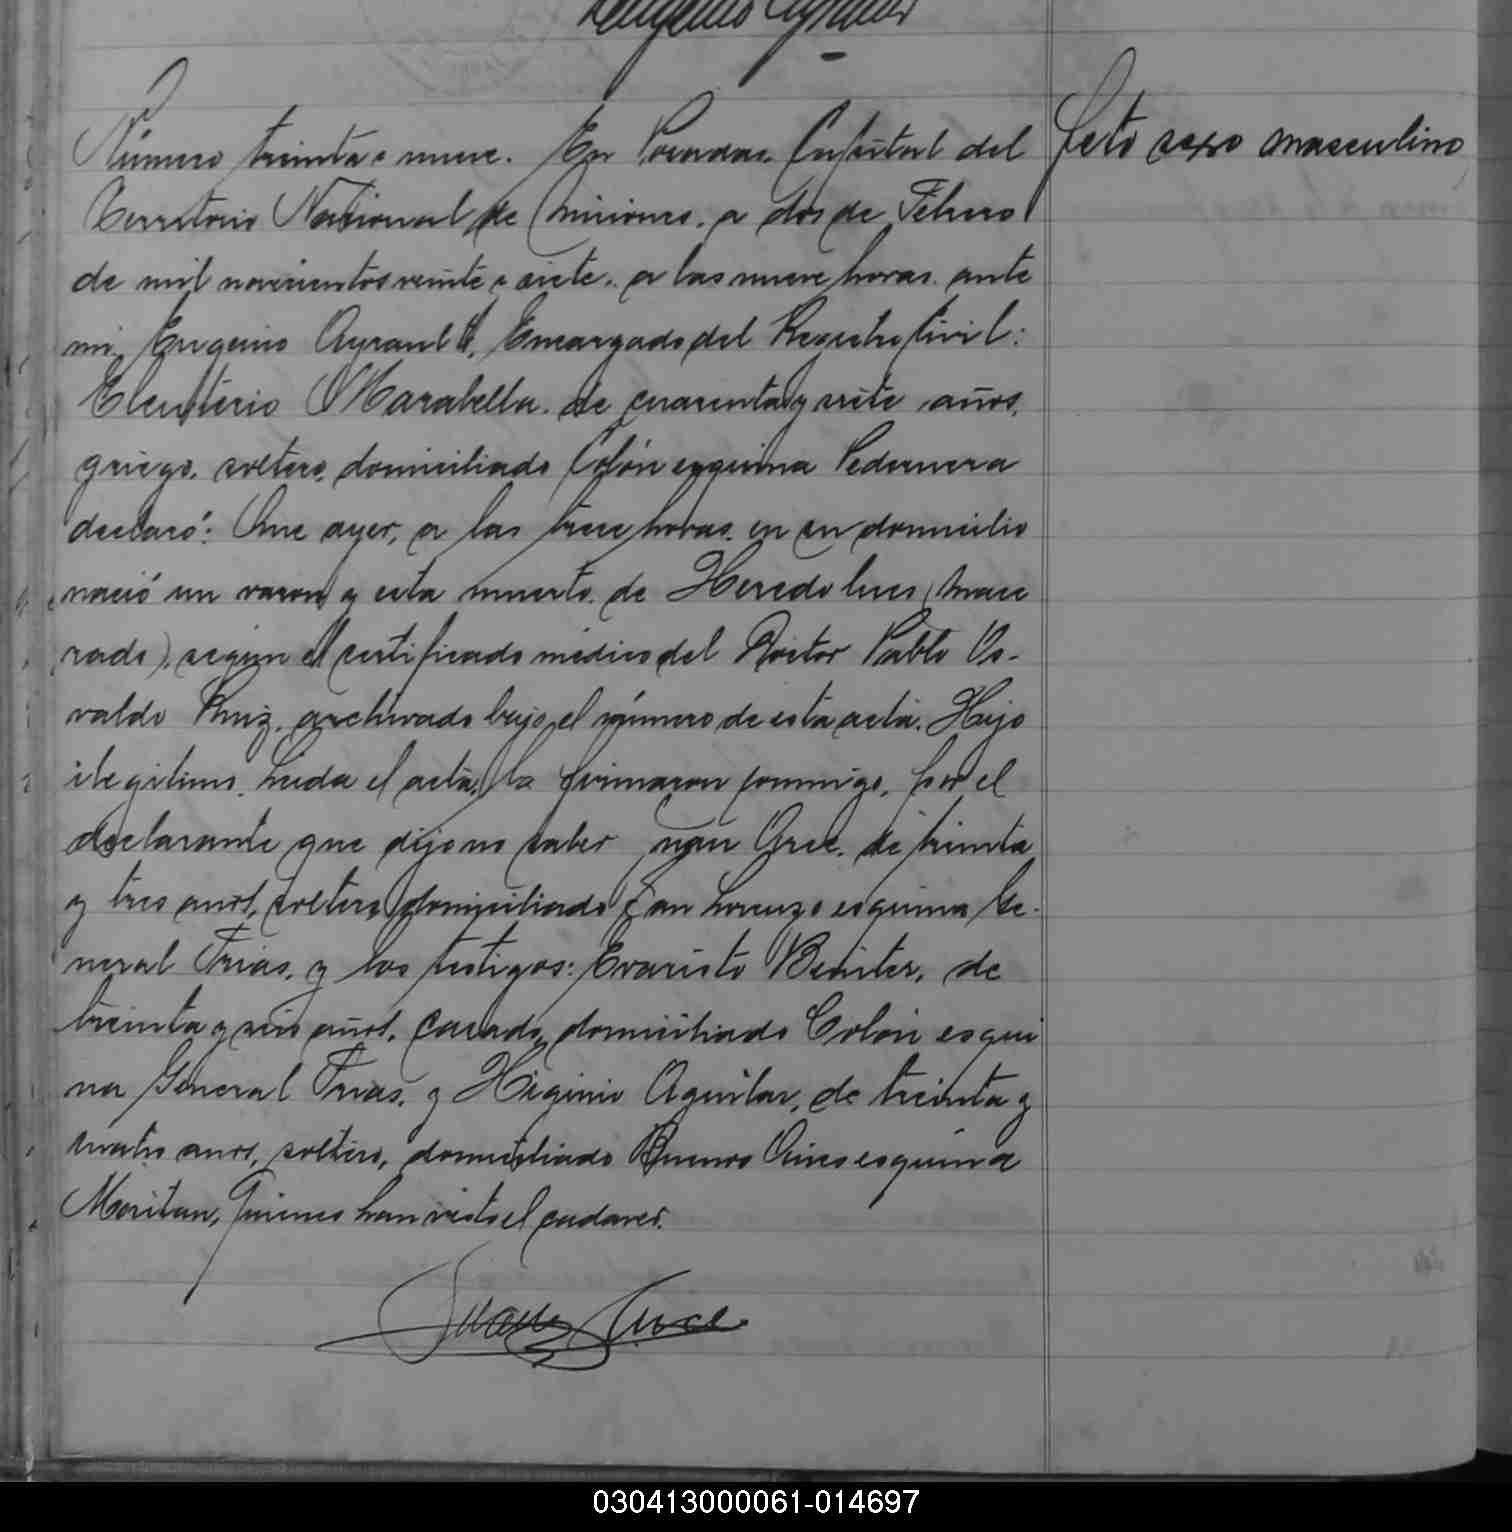 Eugenio Ayrault
Número treinta e nueve. En Posadas, Capital del
Territorio Nacional de Misiones, a dos de Febrero
de mil novecientos veinte e siete, a las nueve horas, ante
mi, Eugenio Ayrault, Encargado del Registro Civil:
Eleuterio Marabella, de cuarenta y siete años,
griego, soltero, domiciliado Colón esquina Pedernera
declaró: Que ayer, a las trece horas, en su domicilio
nació un varon y esta muerto, de Heredo lues (mace
rado), según el certificado médico del Doctor Pablo Os-
valdo Ruiz, archivado bajo el número de esta acta. Hijo
ilegitimo. Leida el acta, la firmaron conmigo, por el
declarante que dijo no saber, Juan Arce, de treinta
y tres años, soltero, domiciliado San Lorenzo esquina Ge-
neral Frias, y los testigos: Evaristo Benitez, de
treinta y seis años, casado, domiciliado Colón esqui
na General Frias, y Higinio Aguilar, de treinta y
cuatro años, soltero, domiciliado Buenos Aires esquina
Moritan, Quienes han visto el cadaver.
Juan Arce
feto sexo masculino
030413000061-014697